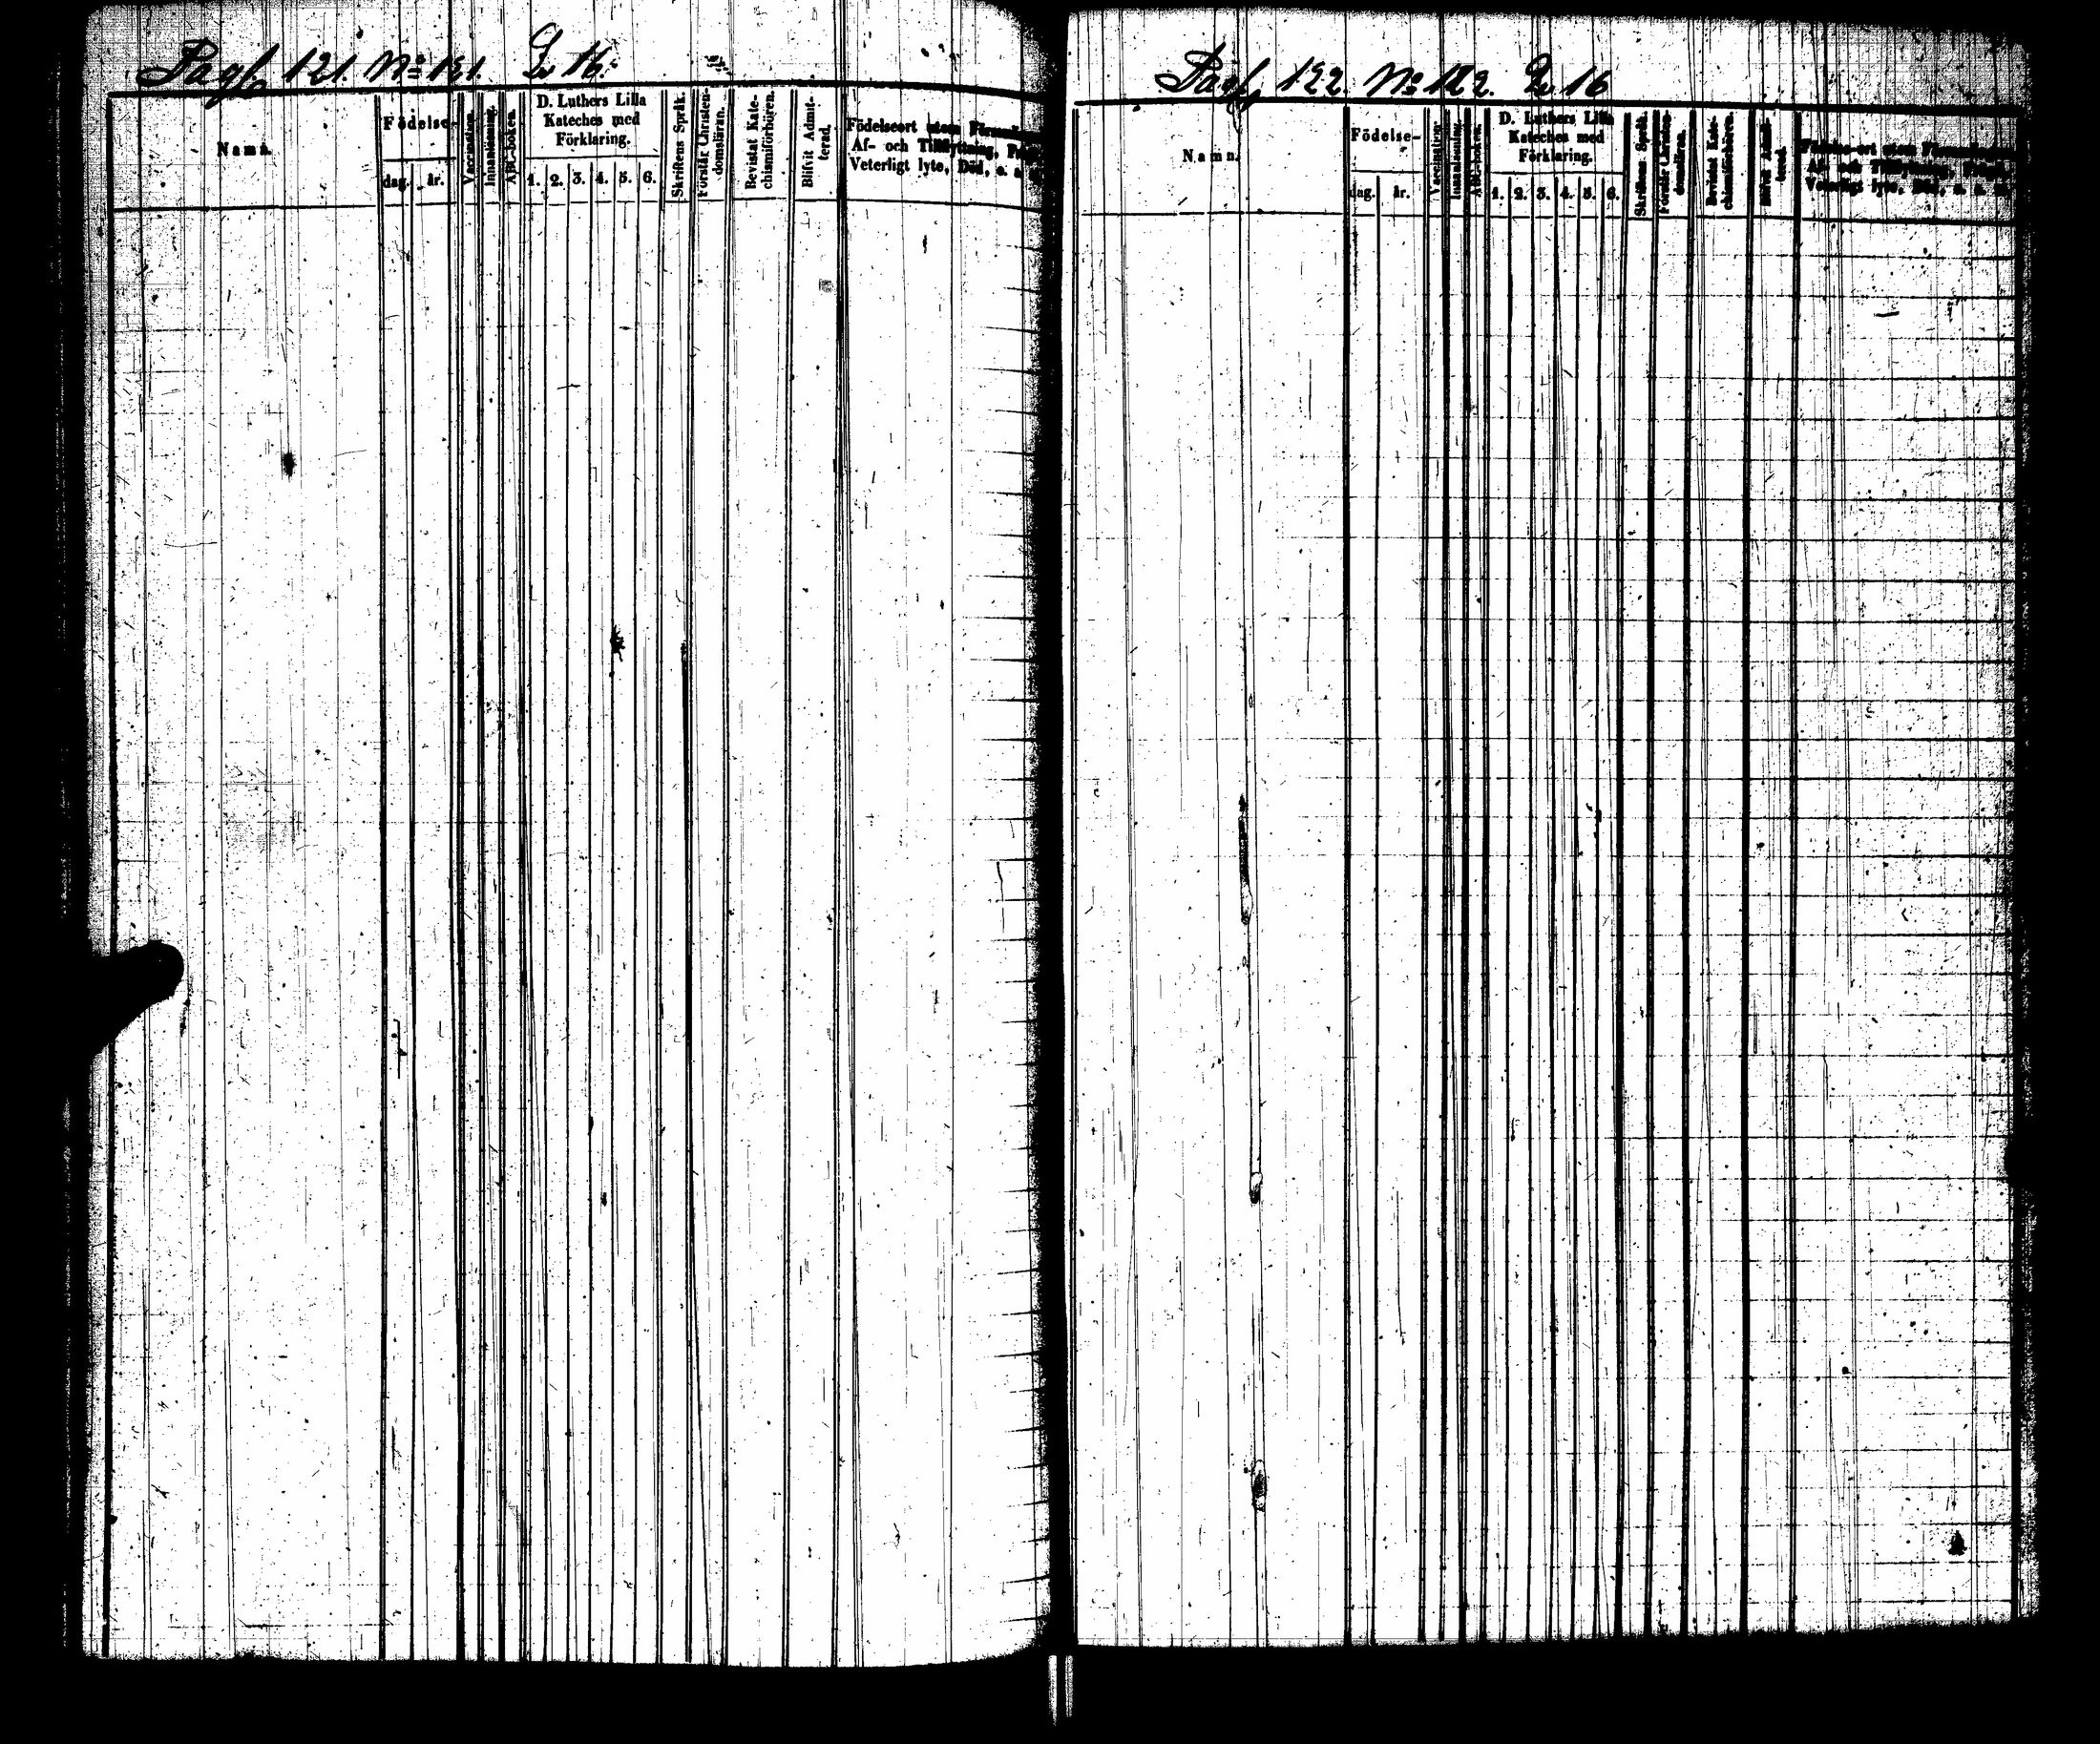 Pag. 121. No 121. Qv 16.
Namn.
Födelse-
dag. år.
Vaccination.
Innanläsning.
ABC-boken.
D. Luthers Lilla
Kateches med
Förklaring.
1. 2. 3. 4. 5. 6.
Skriftens Språk.
Förstår Christen-
domsläran.
Bevistat Kate-
chismiförhören.
Blifvit Admit-
terad.
Födelseort utom
Af- och Tillflyttning,
Veterligt lyte, Död, o. s.
Pag. 122. No 122. Qv 16
Namn.
Födelse-
dag. år.
Vaccination.
Innanläsning.
ABC-boken.
D. Luthers Lilla
Kateches med
Förklaring.
1. 2. 3. 4. 5. 6.
Skriftens Språk.
Förstår Christen-
domsläran.
Bevistat Kate-
chismiförhören.
Blifvit Admit-
terad.
Födelse-ort utom
Af- och
Veterligt lyte, Död, o. s.